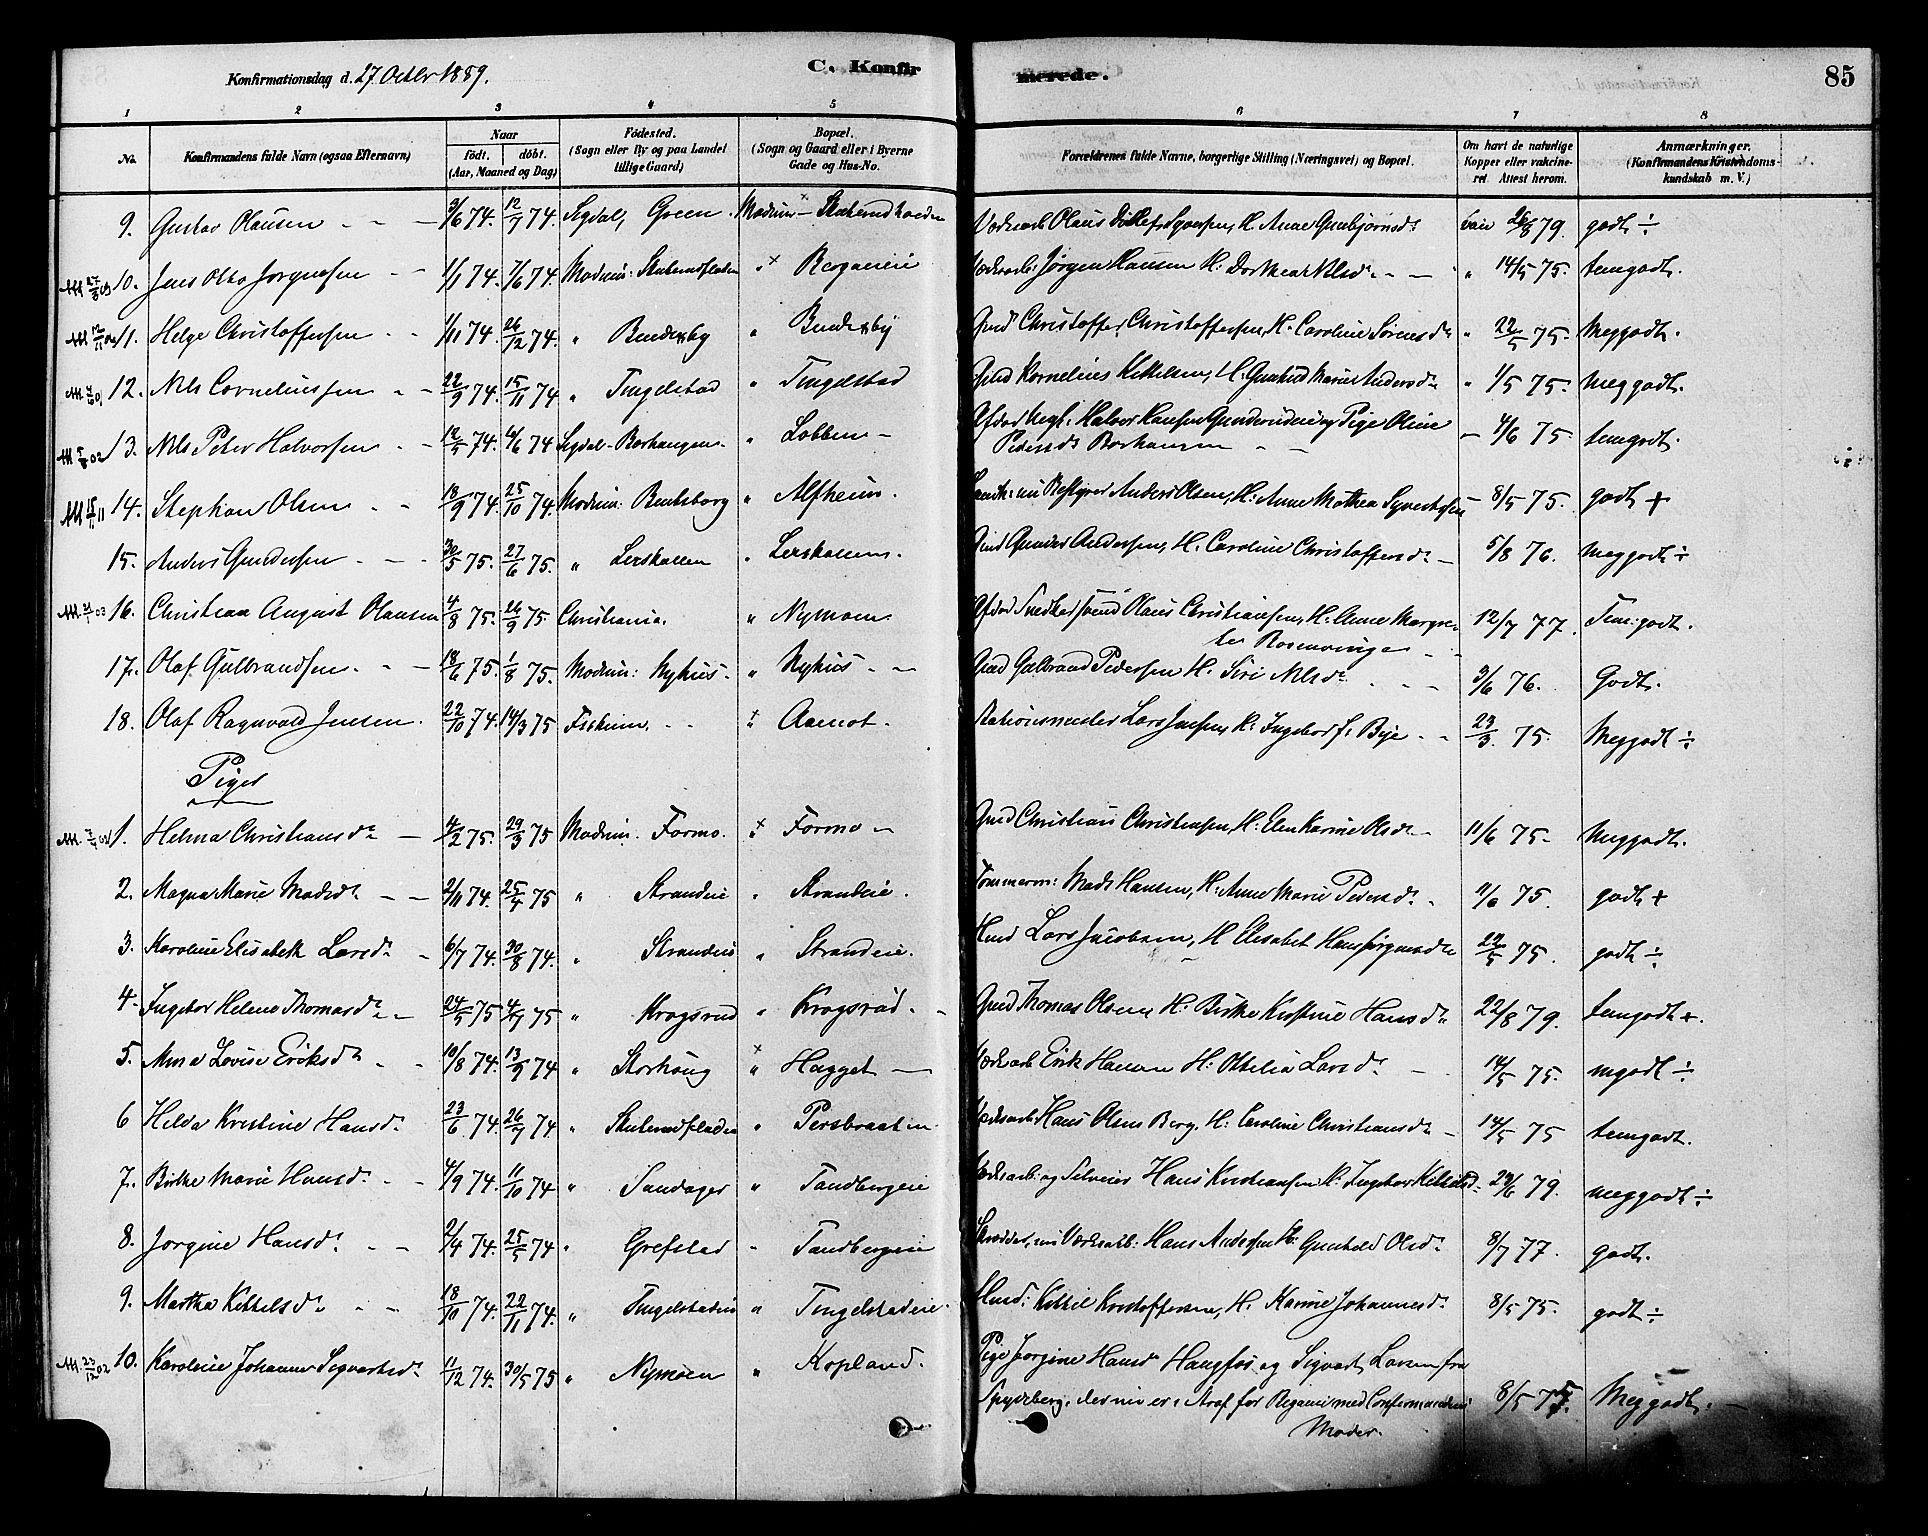 Konfirmationsdag d. 27. Octbr 1889.
C. Konfirmerede.
85
1 2 3 4 5 6 7 8
No. Konfirmandens fulde Navn (ogsaa Efternavn) Naar født. døbt. (Aar, Maaned og Dag) Fødested. (Sogn eller By og paa Landet tillige Gaard) Bopæl. (Sogn og Gaard eller i Byerne Gade og Hus-No. Forældrenes fulde Navne, borgerlige Stilling (Næringsvei) og Bopæl. Om havt de naturlige Kopper eller vakcineret Attest herom. Anmærkninger. (Konfirmandens Kristendomskundskab m. V.)
9. Gustav Olausen 3/6 74. 12/7 74. Sigdal, Green. Modum Værksarb Olaus H. Anne Gunbjørnsd. 79. godt ÷
10. Jens Otto Jørgensen 1/1 74. 7/6 74. Modum: Skuterudfladen " Berganeie Værksarb. Jørgen Hansen H: Dorthea Nilsd. " 14/5 75. temgodt.
11. Helge Christoffersen 1/11 74. 26/12 74. " Bendixby " Bendixby Gmd Christoffer Christoffersen, H. Caroline Sørensd. " 22/5 75. Meggodt.
12. Nils Corneliussen 22/9 74. 15/11 74 " Tingelstad " Tingelstad Gmd Kornelius Kittelsen, H: Gunhild Marie Andersd. " 1/5 75. meggodt.
13. Nils Peter Halvorsen 12/5 74. 6/6 74 Sigdal - Borhaugen. " Lobben Ungk: Halvor Hansen Pige Oline
Pedersd. Borhaugen 4/6 75. temgodt.
14. Stephan Olsen 18/9 74. 25/10 74. Modum: Bentsborg " Alfheim. Bestyrer Anders Olsen, H: Anne Mathea 8/5 75. godt +
15. Anders Gundersen 30/5 75. 27/6 75. " Lerskallen " Lerskallen. Gmd Gunder Andersen, H. Caroline Christoffersd. 5/8 76. Meggodt ÷
16. Christian August Olausen 4/8 75. 26/9 75. Christiania. " Nymoen Olaus Christiansen, H: Anne Margre-
the Rosenvinge 12/7 77. Tem: godt.
17. Olaf Gulbrandsen 18/6 75. 1/8 75. Modum: Nyhus " Nyhus Gmd Gulbrand Pedersen H. Siri Nilsd. 3/6 76. Godt.
18. Olaf Ragnvald Jensen. 22/10 74. 14/3 75 Fiskum. " Aamot. Stationsmester Lars Jensen, H: Ingebor f. Bye 23/3 75. Meggodt ÷
Piger
1. Helma Christiansd. 4/2 75. 29/3 75 Modum. Formo. " Formo Gmd Christian Christensen, H: Elen Karine Olsd. 11/6 75 Meggodt.
2. Magna Marie Madsd. 2/11 74. 25/4 75 " Strandeie " Strandeie. Tømmerm: Mads Hansen, H: Anne Marie Pedersd. 75. godt +
3. Karoline Elisabeth Larsd. 6/7 74. 30/8 74. " Strandeie " Strandeie. Hmd Lars Jacobsen, H Elisabet Hansjørgensd. 22/5 75. godt ÷
4. Ingebor Helene Thomasd. 24/5 75 4/7 75 " Krogsrud " Krogsrud. Gmd Thomas Olsen H: Birthe Kirstine Hansd. 22/8 79. temgodt +.
5. Anna Lovise Eriksd. 10/8 74. 13/9 74 " Storhoug " Hagget Værksarb Erik Hansen H: Othelia Larsd. 14/5 75. mgodt ÷
6 Hilda Kristine Hansd. 23/6 74. 26/7 74 " Skuterudfladen " Persbraaten Værksarb Hans Olsen Berg, H: Caroline Christiansd. 14/5 75 temgodt.
7. Birthe Marie Hansd. 4/9 74. 11/10 74 " Sandager " Tandbergeie Værksarb: og Selveier Hans Kristiansen H: Ingebor Kittilsd. 79. meggodt ÷
8. Jørgine Hansd. 2/4 74. 25/5 74 " Grefstad " Tandbergeie Skrædder, nu Værksarb: Hans Andersen H: Gunhild Olsd. 8/7 77. godt.
9. Martha Kittelsd. 18/10 74. 22/11 74. " Tingelstadeie " Tingelstadeie. Hmd: Kittil Kristoffersen, H. Karine Johannesd. 8/5 75. godt ÷
10. Karoline Johanne Sigvartsd. 11/12 74. 30/5 75 " Nymoen " Kopland. Pige Jørgine Hansd. Haugfos og Sigvart Larsen fra
Spydeberg, der nu er i Straf for Bigami med Confirmandens
Moder. 8/5 75. Meggodt.